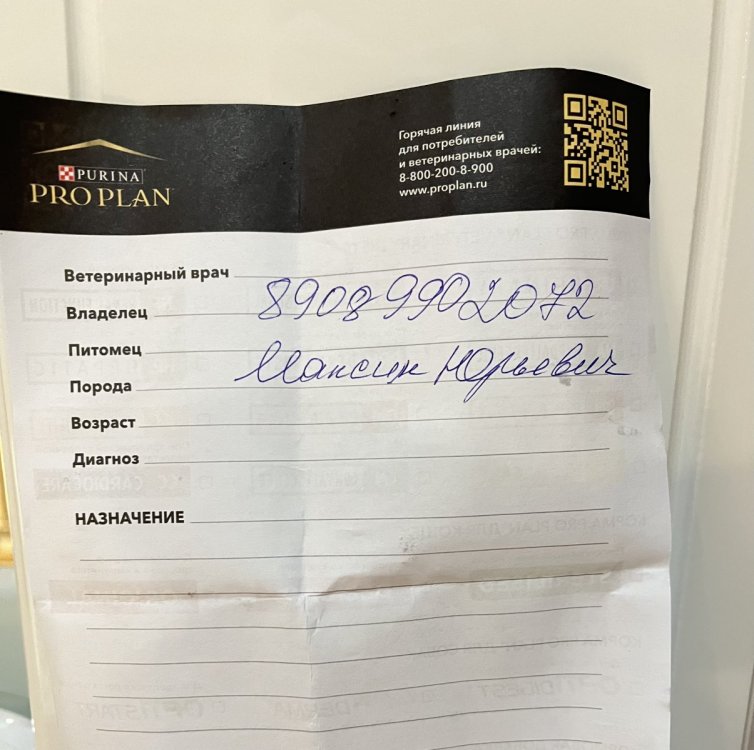 Горячая линия
для потребителей
и ветеринарных врачей:
8-800-200-8-900
www.proplan.ru
PURINA
PRO PLAN
Ветеринарный врач
Владелец 89089902072
Питомец
Порода Максим Юрьевич
Возраст
Диагноз
НАЗНАЧЕНИЕ